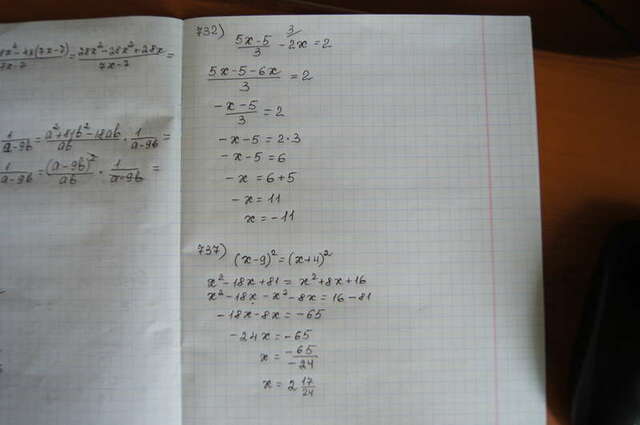 28x²-4x(7x-7)/7x-7 = 28x²-28x²+28x/7x-7 =
1/a-9b = a²+81b²-18ab/ab · 1/a-9b =
1/a-9b = (a-9b)²/ab · 1/a-9b =
732) 5x-5/3 - 2x = 2
3
5x-5-6x/3 = 2
-x-5/3 = 2
-x-5 = 2·3
-x-5 = 6
-x = 6+5
-x = 11
x = -11
737) (x-9)² = (x+4)²
x²-18x+81 = x²+8x+16
x²-18x-x²-8x = 16-81
-18x-8x = -65
-24x = -65
x = -65/-24
x = 2 17/24